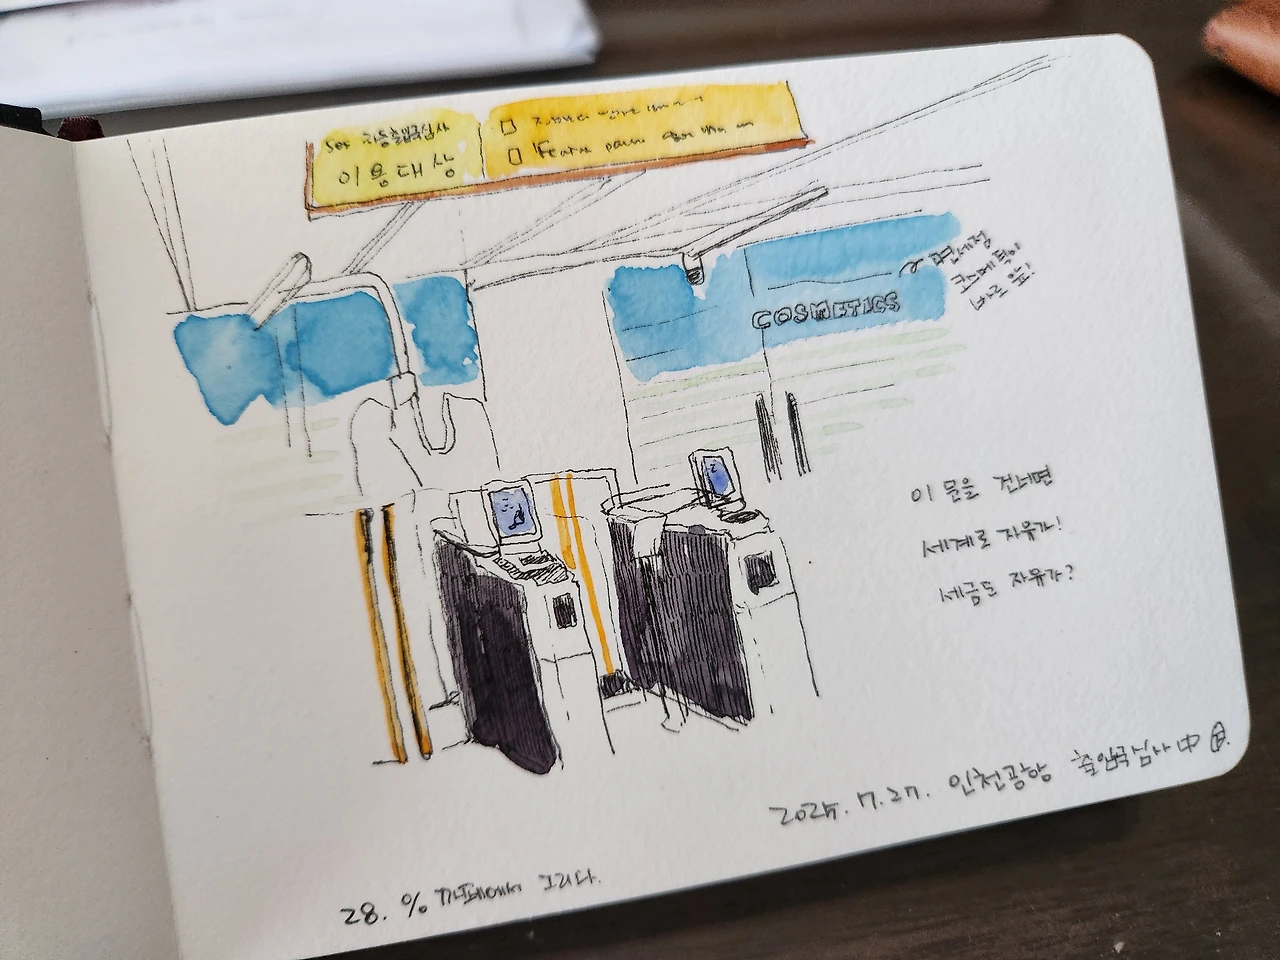 SeS 자동출입국심사
이용대상
COSMETICS
면세점
바로 앞!
이 문을 건너면
세계로 자유가!
세금도 자유가?
2025.7.27. 인천공항 출입국심사 中
28. % 카페에서 그리다.